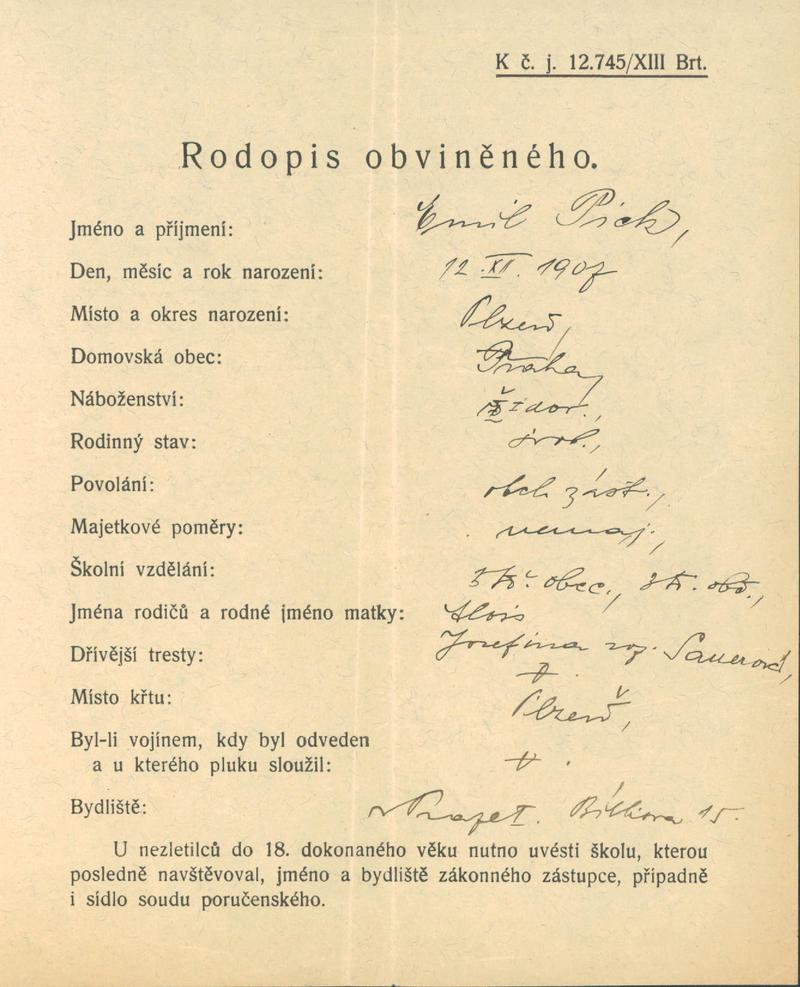 K č. j. 12.745/XIII Brt.
Rodopis obviněného.
Jméno a příjmení: Emil Pick,
Den, měsíc a rok narození: 12. XII. 1907
Místo a okres narození: Plzeň,
Domovská obec: Praha,
Náboženství: židov.,
Rodinný stav: svob.,
Povolání: obch. zást.,
Majetkové poměry: nemaj.,
Školní vzdělání: 5 tř. obec., 3 tř. obch.,
Jména rodičů a rodné jméno matky: Alois
Josefina roz. Sauerová,
Dřívější tresty:
Místo křtu: Plzeň,
Byl-li vojínem, kdy byl odveden
a u kterého pluku sloužil:
Bydliště: v Praze I. Bílkova 15.
U nezletilců do 18. dokonaného věku nutno uvésti školu, kterou
posledně navštěvoval, jméno a bydliště zákonného zástupce, případně
i sídlo soudu poručenského.